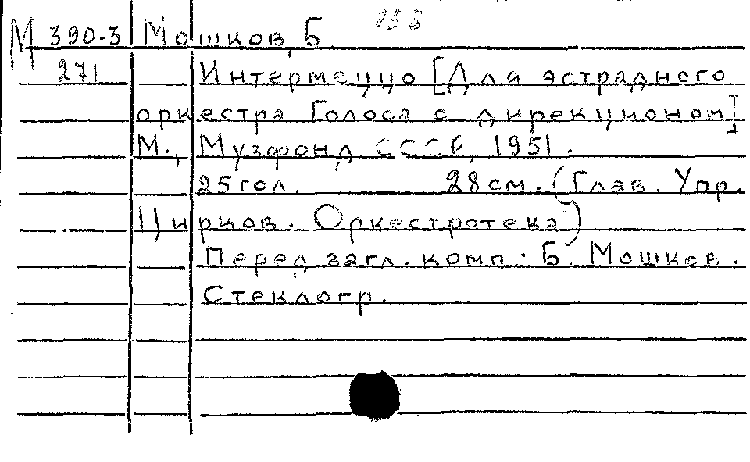 М 390-3 Мошков, Б
271 Интермеццо [Для эстрадного
оркестра Голоса с дирекционом]
М., Музфонд СССР, 1951.
25 гол. 28 см. (Глав. Упр.
Цирков. Оркестротека)
Перед загл. комп. Б. Мошков.
Стеклогр.